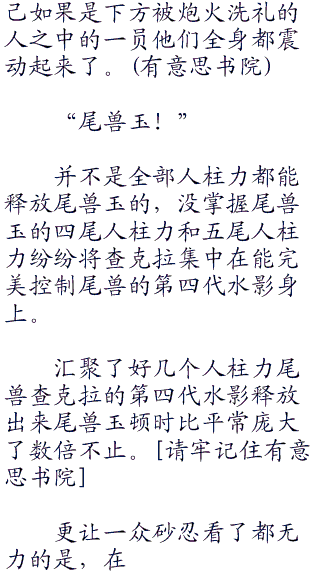 己如果是下方被炮火洗礼的
人之中的一员他们全身都震
动起来了。(有意思书院)
“尾兽玉！”
并不是全部人柱力都能
释放尾兽玉的，没掌握尾兽
玉的四尾人柱力和五尾人柱
力纷纷将查克拉集中在能完
美控制尾兽的第四代水影身
上。
汇聚了好几个人柱力尾
兽查克拉的第四代水影释放
出来尾兽玉顿时比平常庞大
了数倍不止。[请牢记住有意
思书院]
更让一众砂忍看了都无
力的是，在